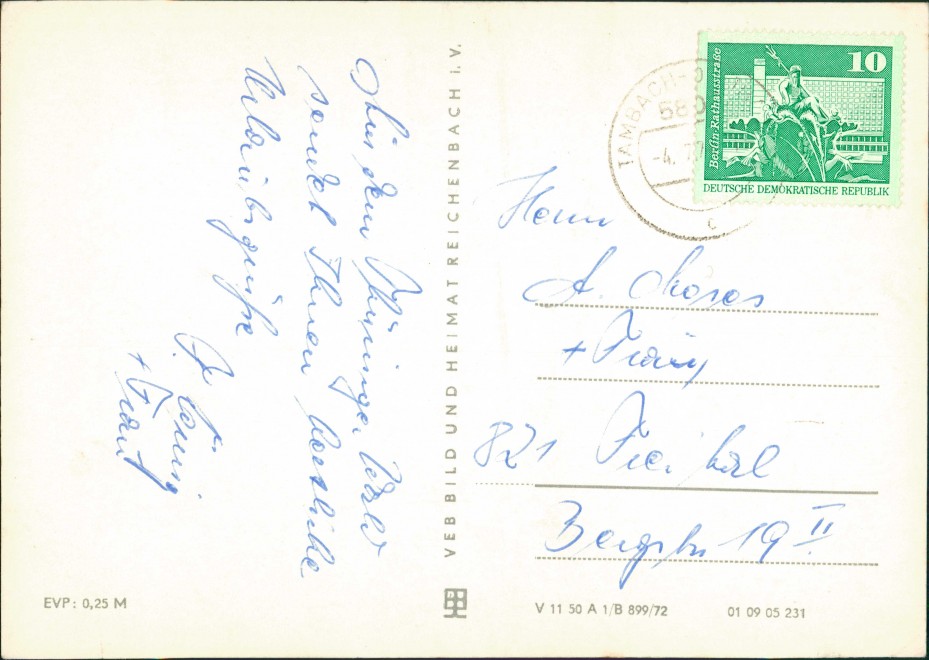 Aus dem Thüringer Wald
sendet Ihnen herzliche
Urlaubsgrüße
+ Frau
VEB BILD UND HEIMAT REICHENBACH I. V.
Berlin-Rathausstraße
10
DEUTSCHE DEMOKRATISCHE REPUBLIK
TAMBACH-
-4. 7.7
c
Herrn
A.
+ Frau
821 Freital
19 II
EVP: 0,25 M
V 11 50 A 1/B 899/72
01 09 05 231